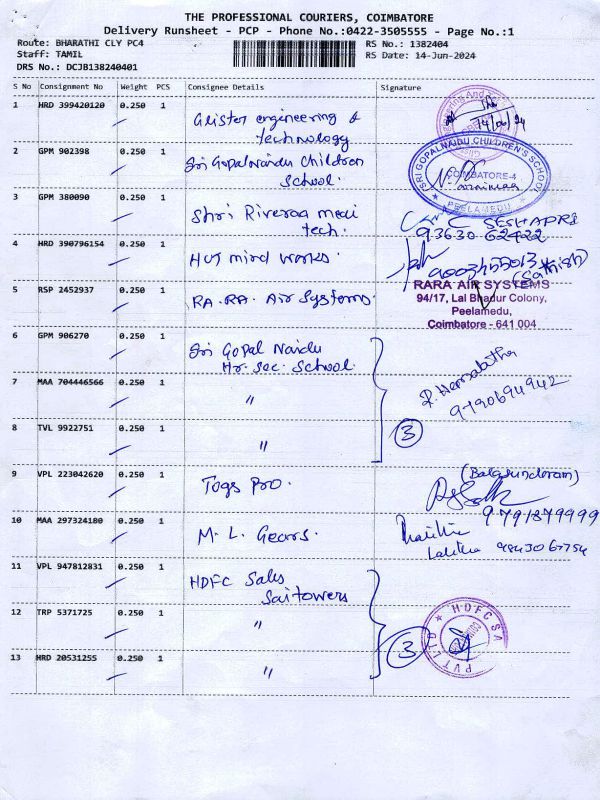 THE PROFESSIONAL COURIERS, COIMBATORE
Delivery Runsheet - PCP - Phone No.:0422-3505555 - Page No.:1
Route: BHARATHI CLY PC4
RS No.: 1382404
Staff: TAMIL
RS Date: 14-Jun-2024
DRS No.: DCJB138240401
S No Consignment No Weight PCS Consignee Details Signature
1 HRD 399420120 0.250 1 Glister engineering &
technology
14/06/24
2 GPM 902398 0.250 1 Sri Gopal Naidu Children
School.
SRI GOPALNAIDU CHILDREN'S SCHOOL
COIMBATORE-4
PEELAMEDU
3 GPM 380090 0.250 1 Shri Riveraa medi
tech.
C SESHADRI
93630 62422
4 HRD 390796154 0.250 1 HUT mind works.
9003455013
(Sathish)
5 RSP 2452937 0.250 1 RA.RA. Air Systems.
RARA AIR SYSTEMS
94/17, Lal Bhadur Colony,
Peelamedu,
Coimbatore - 641 004
6 GPM 906270 0.250 1 Sri Gopal Naidu
Hr. Sec. School.
7 MAA 704446566 0.250 1 "
R. Hemalatha
9190694942
8 TVL 9922751 0.250 1 "
3
9 VPL 223042620 0.250 1 Togs Pro.
(Balasundaram)
9791879999
10 MAA 297324180 0.250 1 M. L. Gears.
Lalitha 9843067754
11 VPL 947812831 0.250 1 HDFC Sales
Sai towers
12 TRP 5371725 0.250 1 "
3
HDFC SA
PVT LTD
13 HRD 20531255 0.250 1 "